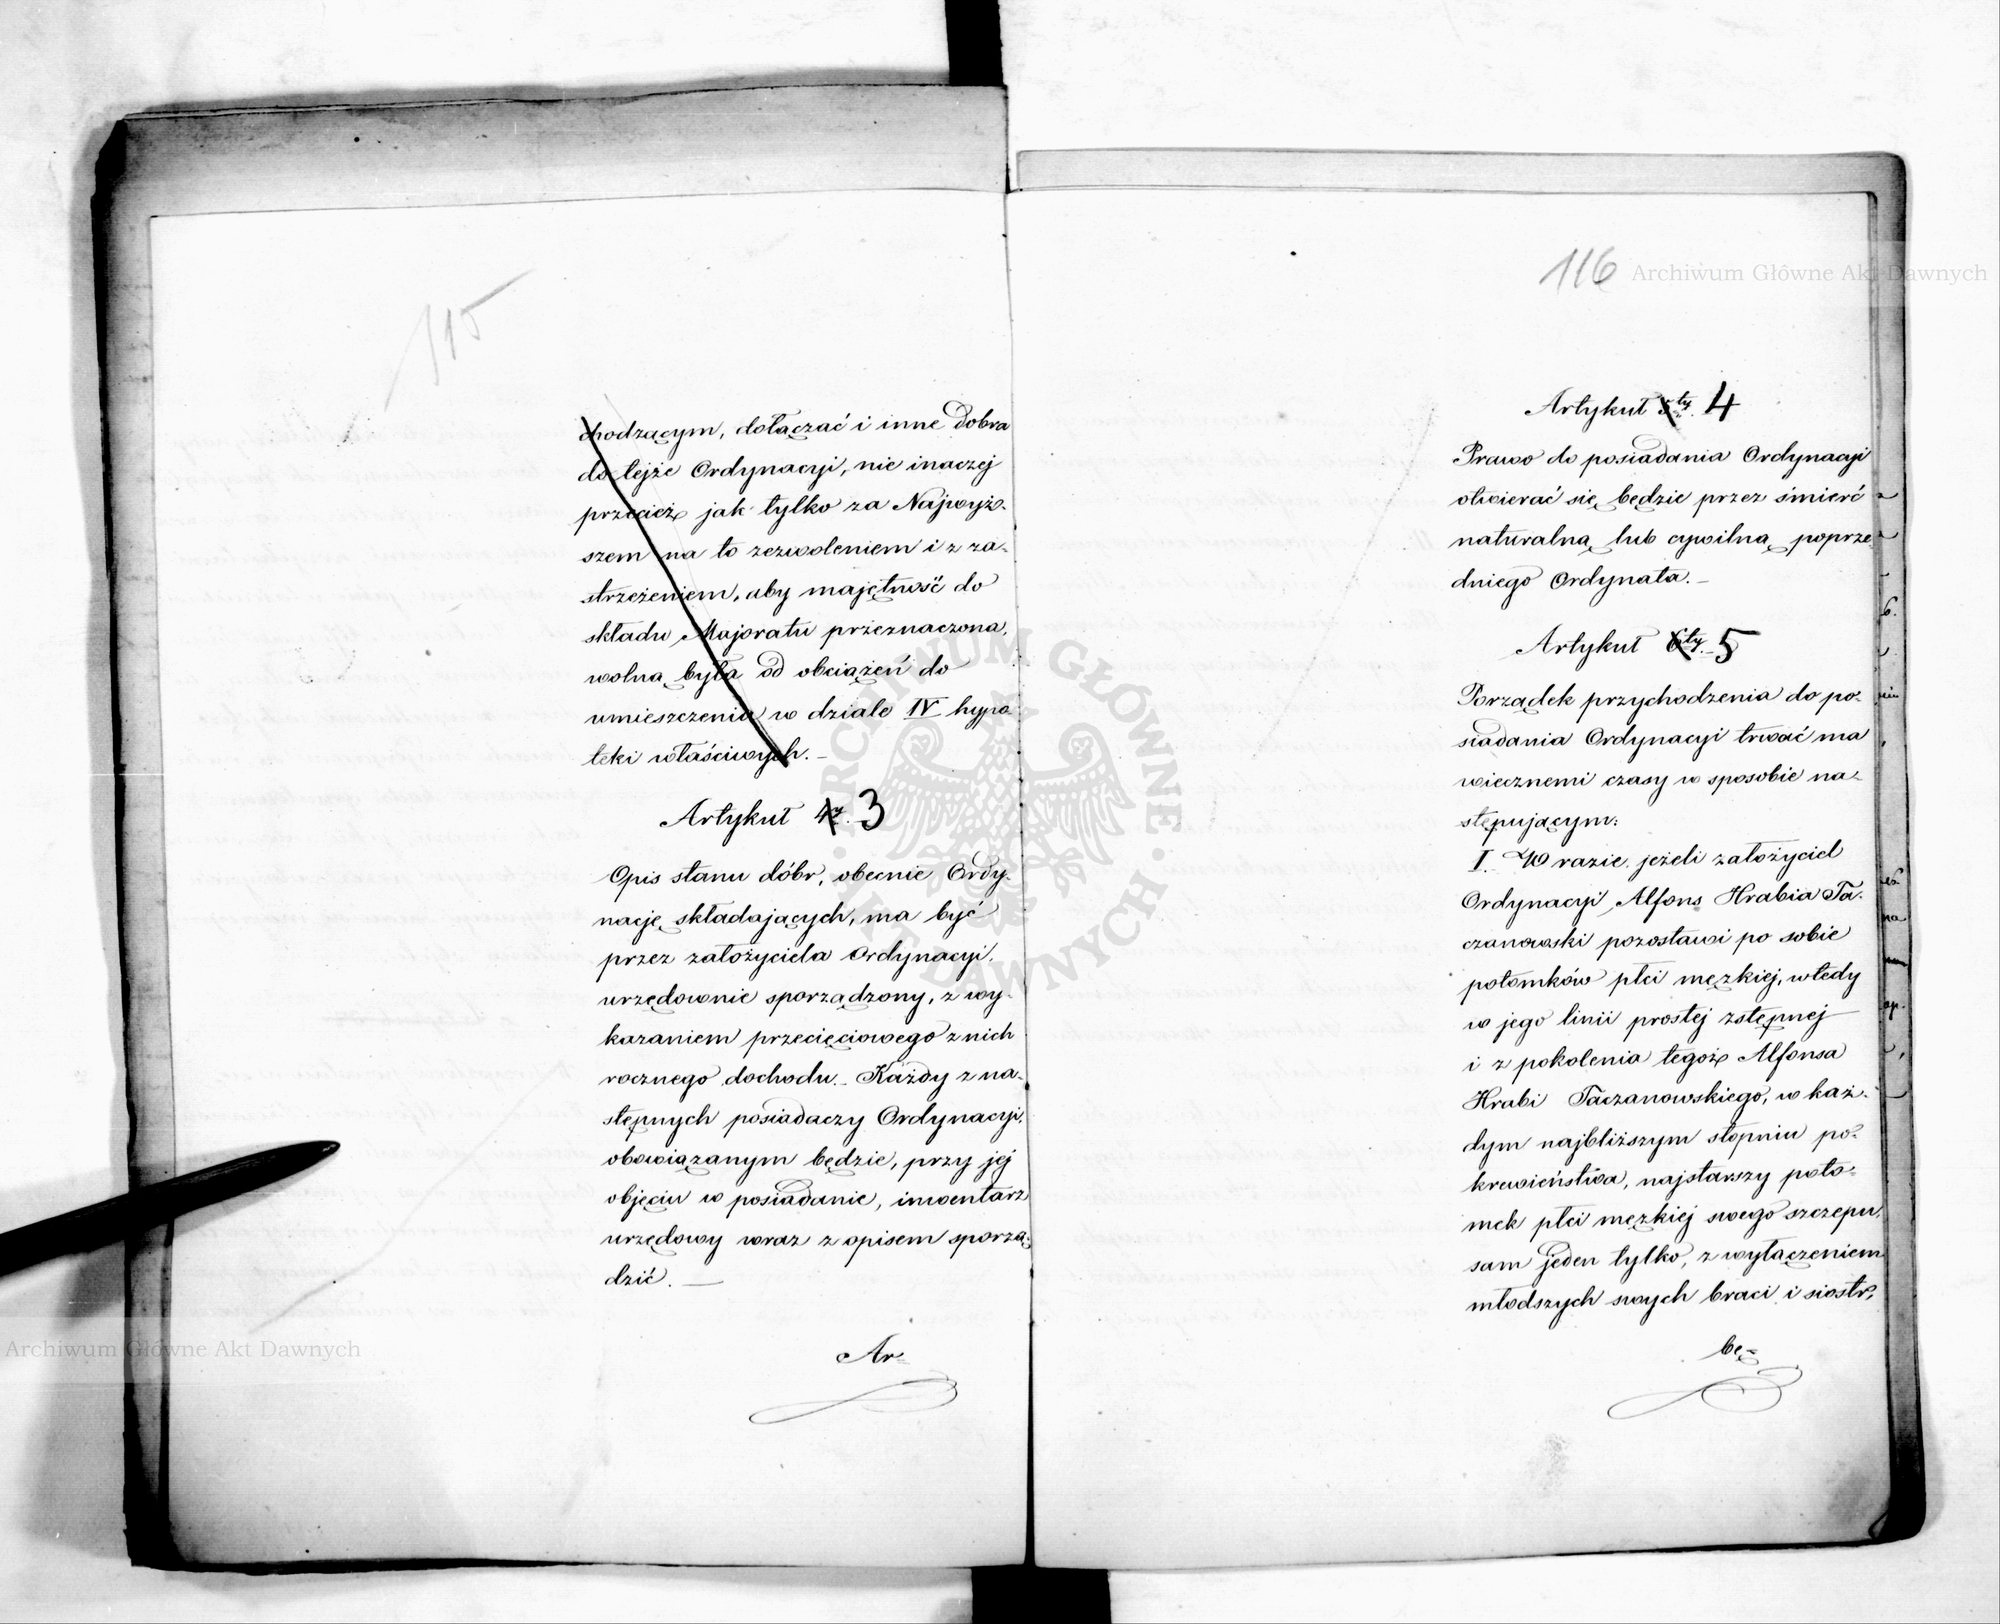 115
chodzącym, dołączać i inne dobra
do tejże Ordynacyi, nie inaczej
przecież jak tylko za Najwyż-
szem na to zezwoleniem i z za-
strzeżeniem, aby majętność do
składu Majoratu przeznaczona,
wolną była od obciążeń do
umieszczenia w dziale IV hypo
teki właściwych. -
Artykuł 4y. 3
Opis stanu dóbr, obecnie Ordy-
nację składających, ma być
przez założyciela Ordynacyi,
urzędownie sporządzony, z wy-
kazaniem przecięciowego z nich
rocznego dochodu. - Każdy z na-
stępnych posiadaczy Ordynacyi,
obowiązanym będzie, przy jej
objęciu w posiadanie, inwentarz
urzędowy wraz z opisem sporzą-
dzić. —
Ar-
116
Artykuł 5ty. 4
Prawo do posiadania Ordynacyi
otwierać się będzie przez śmierć
naturalną lub cywilną poprze-
dniego Ordynata. -
Artykuł 6ty. - 5
Porządek przychodzenia do po-
siadania Ordynacyi trwać ma
wiecznemi czasy w sposobie na-
stępującym:
I. W razie jeżeli założyciel
Ordynacyi, Alfons Hrabia Ta-
czanowski pozostawi po sobie
potomków płci męzkiej, wtedy
w jego linii prostej zstępnej
i z pokolenia tegoż Alfonsa
Hrabi Taczanowskiego, w każ-
dym najbliższym stopniu po-
krewieństwa, najstarszy poto-
mek płci męzkiej swego szczepu,
sam jeden tylko, z wyłączeniem
młodszych swych braci i siostr,
bę-
Archiwum Główne Akt Dawnych
Archiwum Główne Akt Dawnych
ARCHIWUM GŁÓWNE AKT DAWNYCH